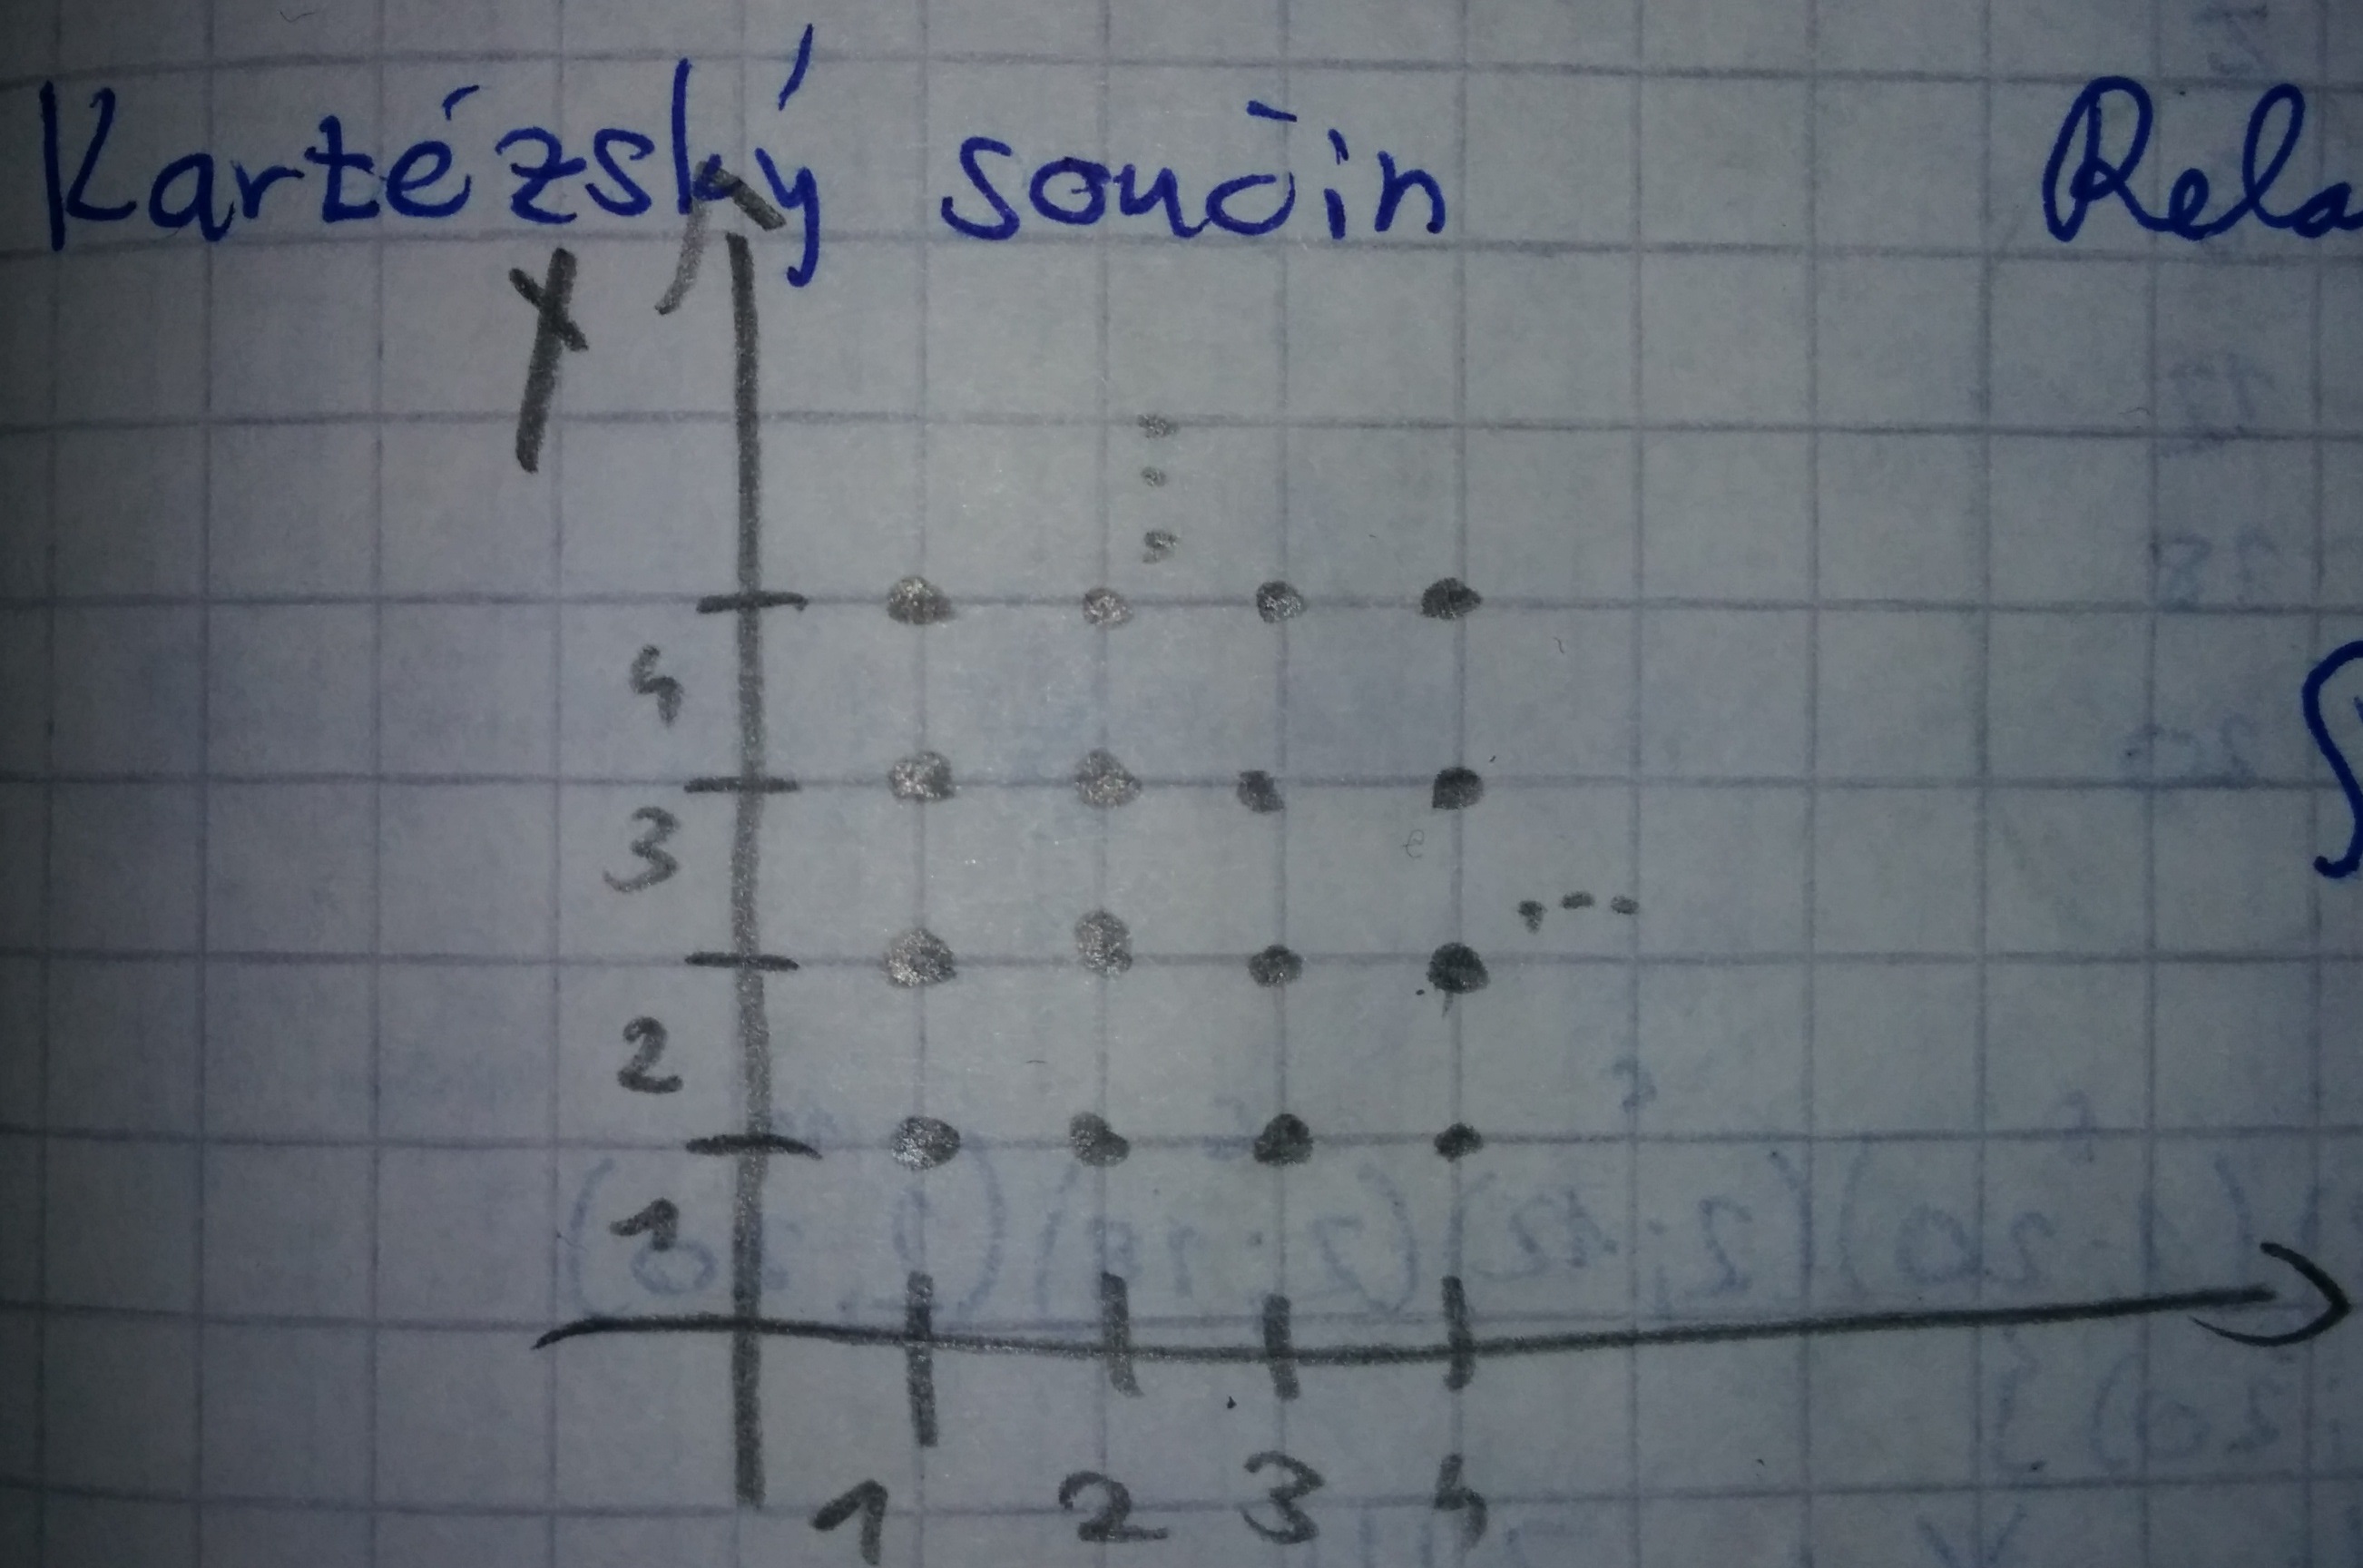 Kartézský součin Rela
y
4
3
2
1
1 2 3 4